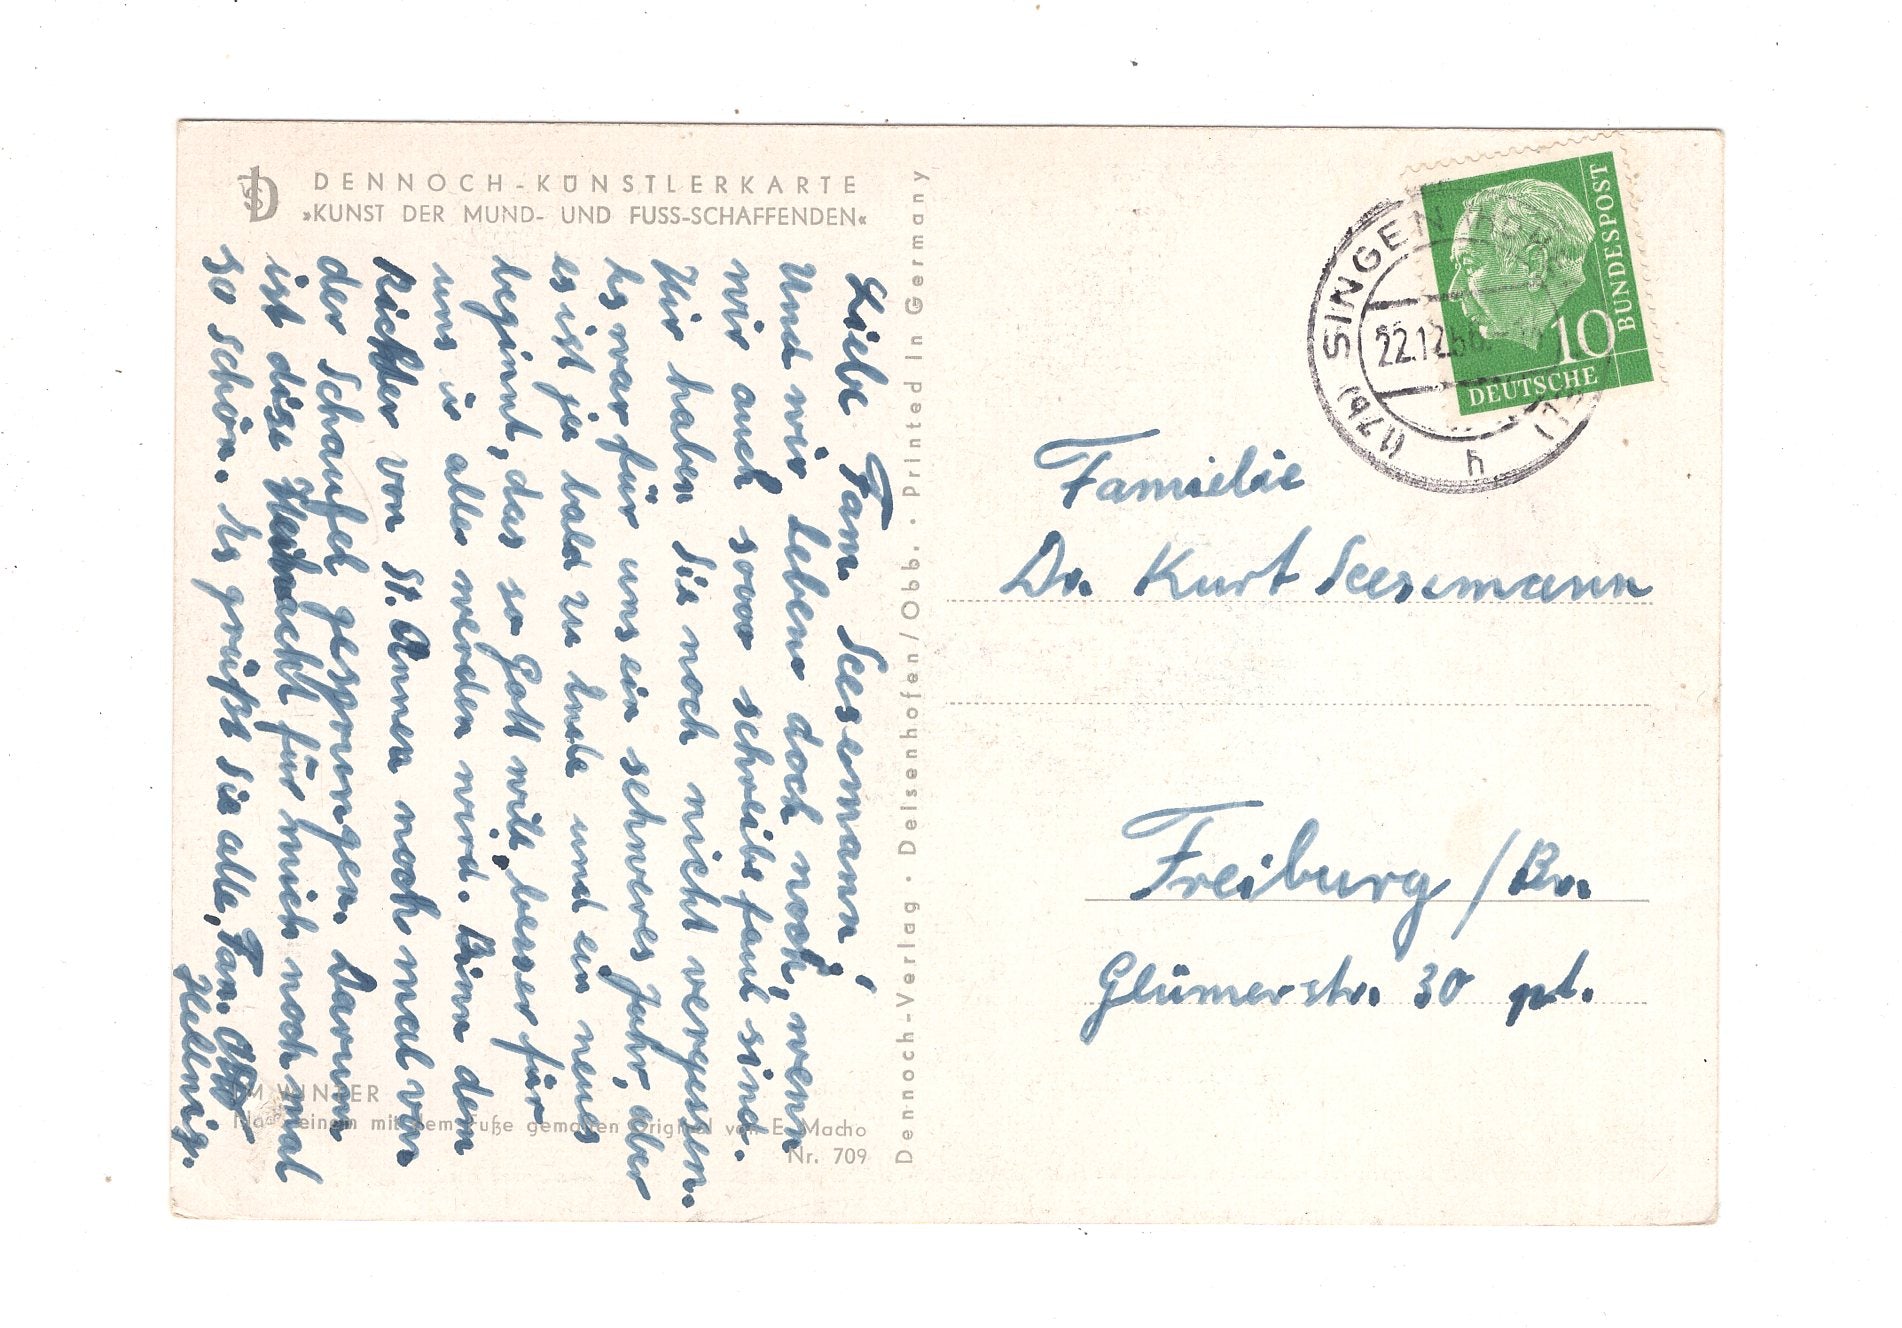 DENNOCH-KÜNSTLERKARTE
»KUNST DER MUND- UND FUSS-SCHAFFENDEN«
Liebe Fam. Seesemann!
Und wir leben doch noch, wenn
wir auch sooo schreibfaul sind.
Wir haben Sie noch nicht vergessen.
Es war für uns ein schweres Jahr, aber
es ist ja bald zu Ende und ein neues
beginnt, das so Gott will, besser für
uns in alles werden wird. Binn dem
Richter von St. Annen noch mal von
der Schaufel gesprungen. Darum
ist dise Weihnacht für mich noch mal
so schön. Es grüßt Sie alle, Fam. Otto
Hellnig.
IM WINTER
Nach einem mit dem Fuße gemalten Original von E. Macho
Nr. 709
Dennoch-Verlag · Deisenhofen/Obb. · Printed in Germany
SINGEN
(17b)
22.12.56
h
10
DEUTSCHE
BUNDESPOST
Familie
Dr. Kurt Seesemann
Freiburg/Br.
Glümerstr. 30 pt.